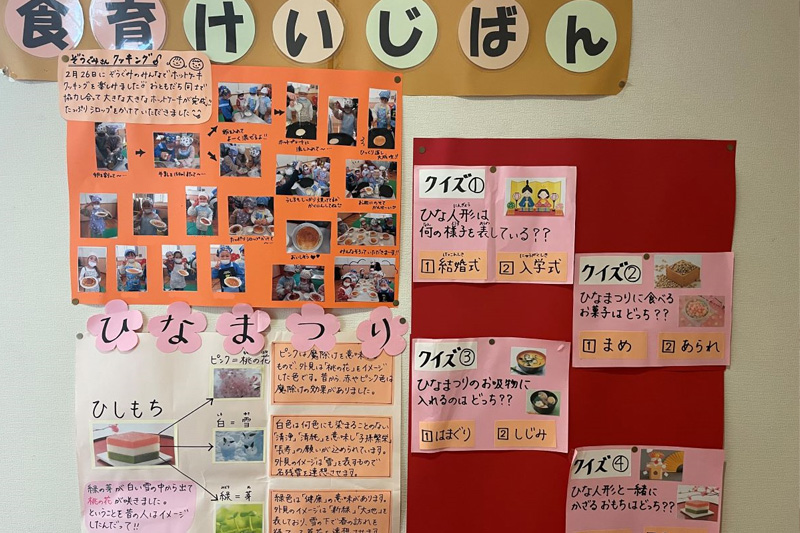 食育けいじばん
ぞうぐみさん クッキング
2月26日に ぞうぐみのみんなでホットケーキ
クッキングを楽しみました おともだち同士で
協力し合って大きな大きなホットケーキが完成。
たっぷりシロップをかけていただきました
ひなまつり
ひしもち
ピンク=桃の花
白=雪
緑=芽
緑の芽が白い雪の中から出て
桃の花が咲きました。
ということを昔の人はイメージ
したんだって!!
ピンクは魔除けを意味する
もので、外見は「桃の花」をイメージ
した色です。昔から赤やピンク色は
魔除けの効果がありました。
白色は何色にも染まることのない
「清浄」「清純」を意味し「子孫繁栄」
「長寿」の願いが込められています。
外見のイメージは「雪」を表すもので
名残雪を連想させます。
緑色は「健康」の意味があります。
外見のイメージは「新緑」「大地」を
表しており、雪の下で春の訪れを
クイズ①
ひな人形は
何の様子を表している??
1 結婚式
2 入学式
クイズ②
ひなまつりに食べる
お菓子はどっち??
1 まめ
2 あられ
クイズ③
ひなまつりのお吸物に
入れるのはどっち??
1 はまぐり
2 しじみ
クイズ④
ひな人形と一緒に
かざるおもちはどっち??